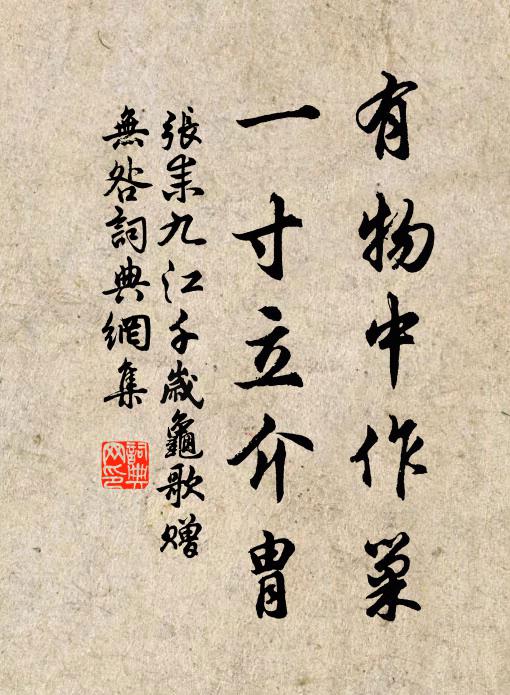 有物中作巢
一寸立介胄
張耒九江千歲龜歌贈
無咎詞典網集
詞典
网印